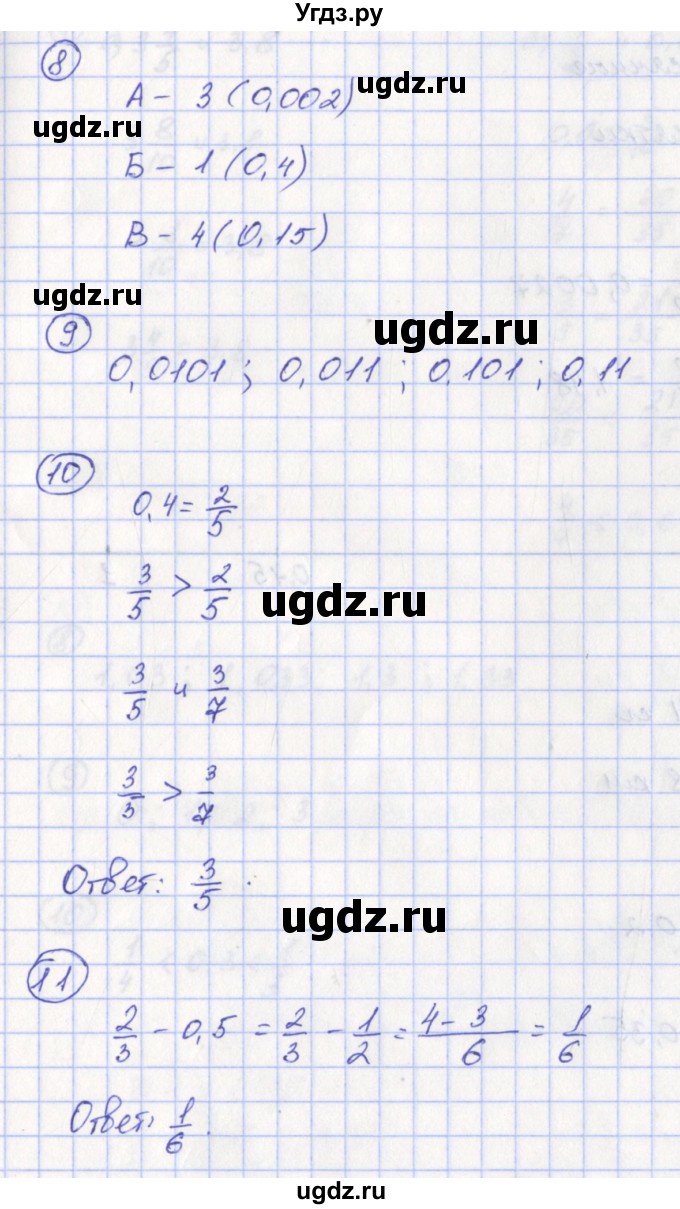 Угдз.ру
8
А – 3 (0,002)
ugdz.ru
ugdz.ru
Б – 1 (0,4)
В – 4 (0,15)
ugdz.ru
ugdz.ru
9
0,0101 ; 0,011 ; 0,101 ; 0,11
10
0,4 = 2/5
3/5 > 2/5
ugdz.ru
3/5 и 3/7
3/5 > 3/7
Ответ: 3/5 .
ugdz.ru
11
2/3 – 0,5 = 2/3 – 1/2 = (4 – 3)/6 = 1/6
Ответ: 1/6 .
ugdz.ru